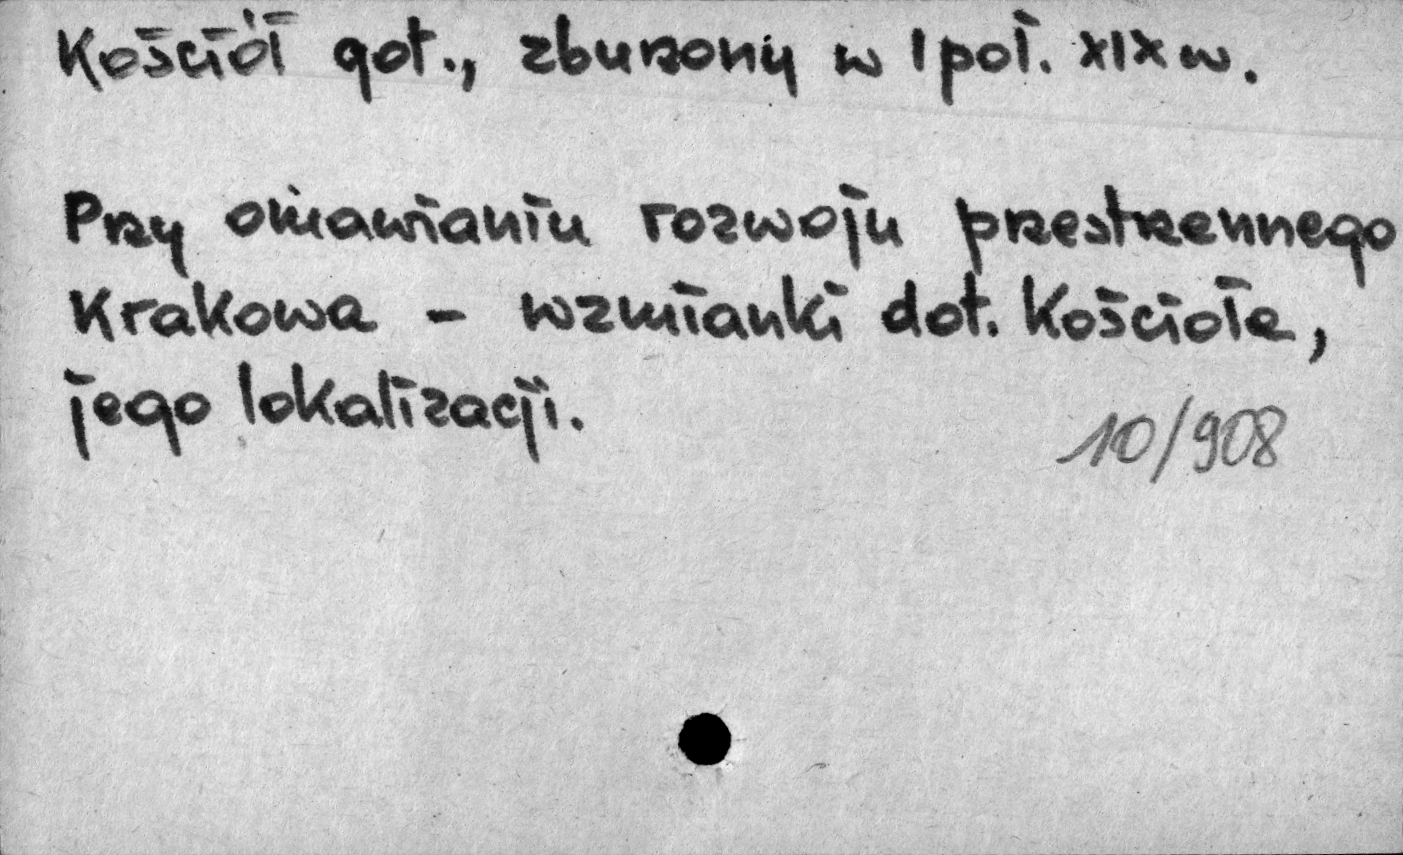 Kościół got., zburzony w I poł. XIX w.
Przy omawianiu rozwoju przestrzennego
Krakowa - wzmianki dot. Kościoła,
jego lokalizacji.
10/908